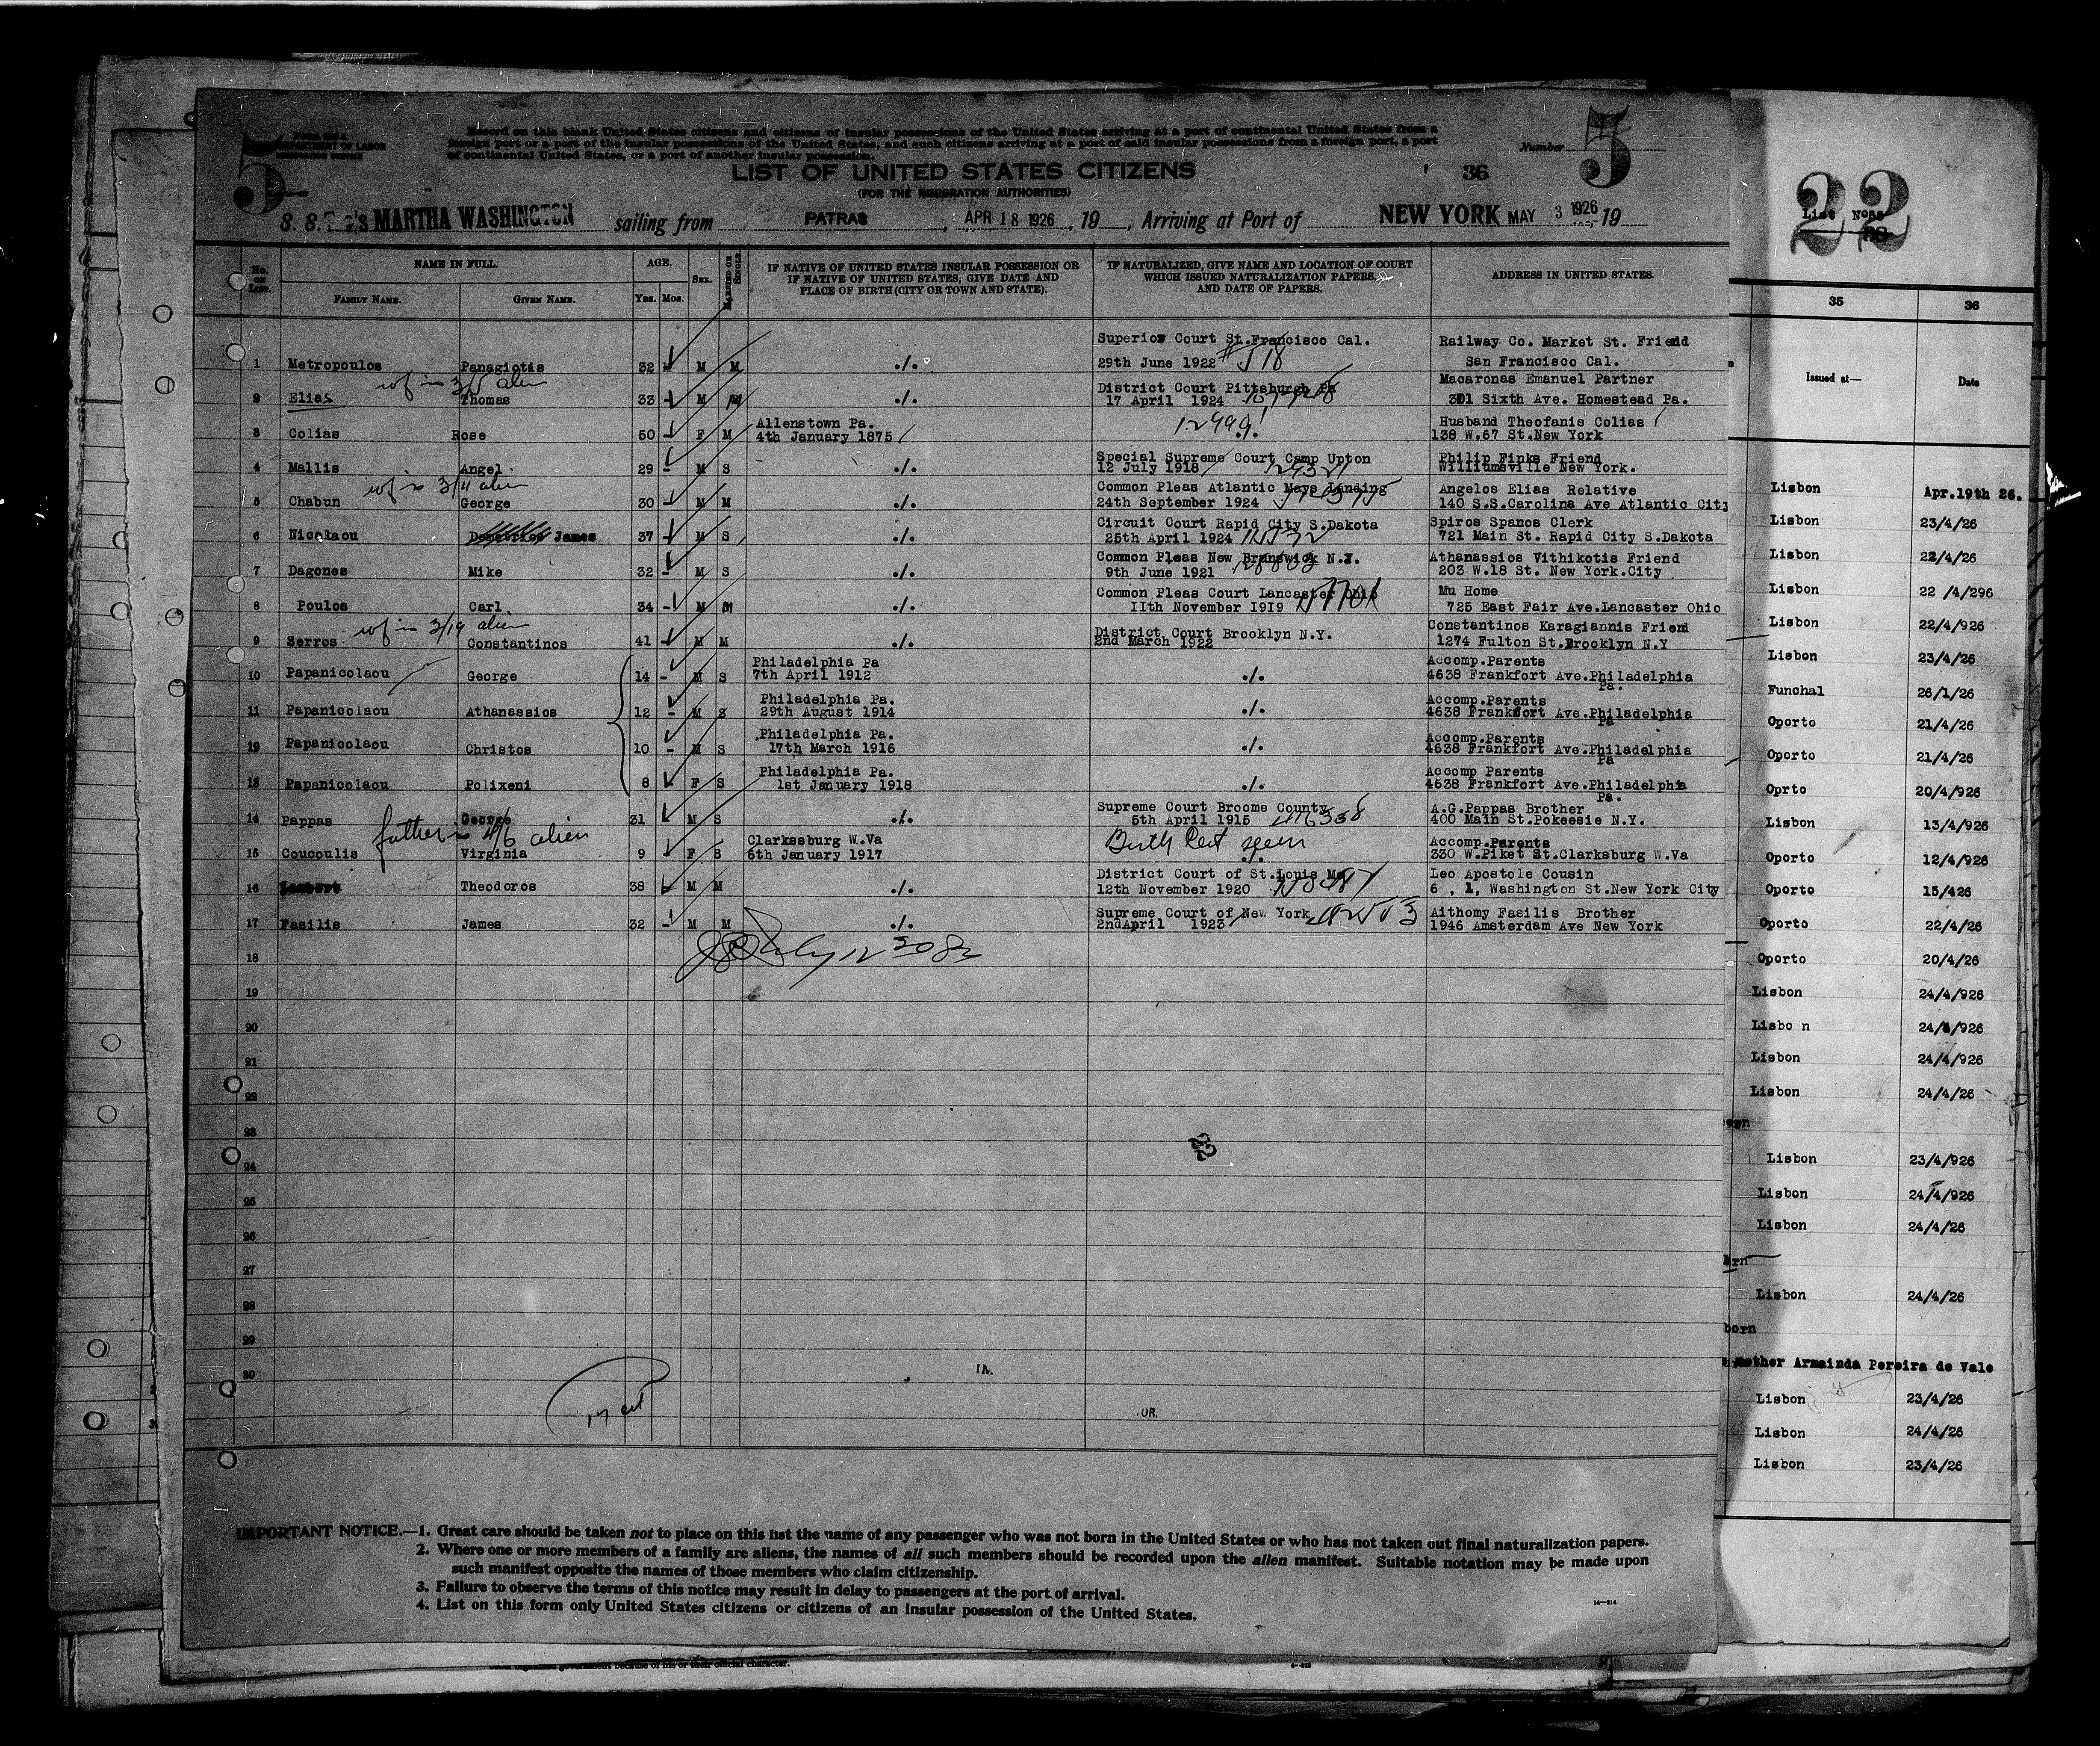 5
DEPARTMENT OF LABOR
IMMIGRATION SERVICE
Record on this blank United States citizens and citizens of insular possessions of the United States arriving at a port of continental United States from a
foreign port or a port of the insular possessions of the United States, and such citizens arriving at a port of said insular possessions from a foreign port, a port
of continental United States, or a port of another insular possession.
Number 5
LIST OF UNITED STATES CITIZENS
36
(FOR THE IMMIGRATION AUTHORITIES)
S. S. MARTHA WASHINGTON sailing from PATRAS, APR 18 1926, 19 , Arriving at Port of NEW YORK MAY 3 1926, 19
No. on List.
NAME IN FULL.
FAMILY NAME. GIVEN NAME.
AGE.
Yrs. Mos.
SEX.
MARRIED OR SINGLE.
IF NATIVE OF UNITED STATES INSULAR POSSESSION OR
IF NATIVE OF UNITED STATES, GIVE DATE AND
PLACE OF BIRTH (CITY OR TOWN AND STATE).
IF NATURALIZED, GIVE NAME AND LOCATION OF COURT
WHICH ISSUED NATURALIZATION PAPERS,
AND DATE OF PAPERS.
ADDRESS IN UNITED STATES.
Superior Court St.Francisco Cal. Railway Co. Market St. Friend
1 Metropoulos Panagiotis 32 M M ./. 29th June 1922 San Francisco Cal.
wf in 3/5 alien
District Court Pittsburgh Pa Macaronas Emanuel Partner
2 Elias Thomas 33 M M ./. 17 April 1924 301 Sixth Ave. Homestead Pa.
Allenstown Pa. Husband Theofanis Colias
3 Colias Rose 50 F M 4th January 1875 12999 138 W.67 St.New York
Special Supreme Court Camp Upton Philip Finks Friend
4 Mallis Angel 29 - M S ./. 12 July 1918 Williamsville New York.
wf in 3/11 alien
Common Pleas Atlantic Mays Landing Angelos Elias Relative
5 Chabun George 30 M M ./. 24th September 1924 140 S.S.Carolina Ave Atlantic City
Circuit Court Rapid City S.Dakota Spiros Spanos Clerk
6 Nicolaou James 37 M S ./. 25th April 1924 721 Main St. Rapid City S.Dakota
Common Pleas New Brunswick N.J. Athanassios Vithikotis Friend
7 Dagones Mike 32 - M S ./. 9th June 1921 203 W.18 St. New York.City
Common Pleas Court Lancaster Ohio Mu Home
8 Poulos Carl 34 - M M ./. IIth November I9I9 725 East Fair Ave.Lancaster Ohio
wf in 3/19 alien
District Court Brooklyn N.Y. Constantinos Karagiannis Friend
9 Serros Constantinos 41 M M ./. 2nd March 1922 1274 Fulton St.Brooklyn N.Y
Philadelphia Pa Accomp.Parents
10 Papanicolaou George 14 - M S 7th April 1912 ./. 4638 Frankfort Ave.Philadelphia
Pa.
Philadelphia Pa. Accomp.Parents
11 Papanicolaou Athanassios 12 - M S 29th August 1914 ./. 4638 Frankfort Ave.Philadelphia
Pa
Philadelphia Pa. Accomp.Parents
12 Papanicolaou Christos 10 - M S 17th March 1916 ./. 4638 Frankfort Ave.Philadelphia
Pa
Philadelphia Pa. Accomp Parents
13 Papanicolaou Polixeni 8 F S 1st January 1918 ./. 4638 Frankfort Ave.Philadelphia
Pa.
Supreme Court Broome County A.G.Pappas Brother
14 Pappas George 31 M S ./. 5th April 1915 400 Main St.Pokeesie N.Y.
father in 4/6 alien
Clarksburg W.Va Birth Cert seen Accomp.Parents
15 Coucoulis Virginia 9 F S 6th January 1917 330 W.Piket St.Clarksburg W.Va
District Court of St.Louis Mo Leo Apostole Cousin
16 Theodoros 38 M M ./. 12th November 1920 6 , 1, Washington St.New York City
Supreme Court of New York Aithomy Fasilis Brother
17 Fasilis James 32 - M M ./. 2ndApril 1923 1946 Amsterdam Ave New York
18
19
20
21
22
23
24
25
26
27
28
29
30
IN.
OR.
22
IMPORTANT NOTICE.—1. Great care should be taken not to place on this list the name of any passenger who was not born in the United States or who has not taken out final naturalization papers.
2. Where one or more members of a family are aliens, the names of all such members should be recorded upon the alien manifest. Suitable notation may be made upon
such manifest opposite the names of those members who claim citizenship.
3. Failure to observe the terms of this notice may result in delay to passengers at the port of arrival.
4. List on this form only United States citizens or citizens of an insular possession of the United States.
14—214
22
List No
35 36
Issued at— Date
Lisbon Apr.19th 26.
Lisbon 23/4/26
Lisbon 22/4/26
Lisbon 22 /4/296
Lisbon 22/4/926
Lisbon 23/4/26
Funchal 26/1/26
Oporto 21/4/26
Oporto 21/4/26
Oprto 20/4/926
Lisbon 13/4/926
Oporto 12/4/926
Oporto 15/426
Oporto 22/4/926
Oporto 20/4/26
Lisbon 24/4/926
Lisbo n 24/4/926
Lisbon 24/4/926
Lisbon 24/4/26
Lisbon 23/4/926
Lisbon 24/4/926
Lisbon 24/4/26
Lisbon 24/4/26
born
mother Armainda Pereira de Vale
Lisbon 23/4/26
Lisbon 24/4/26
Lisbon 23/4/26